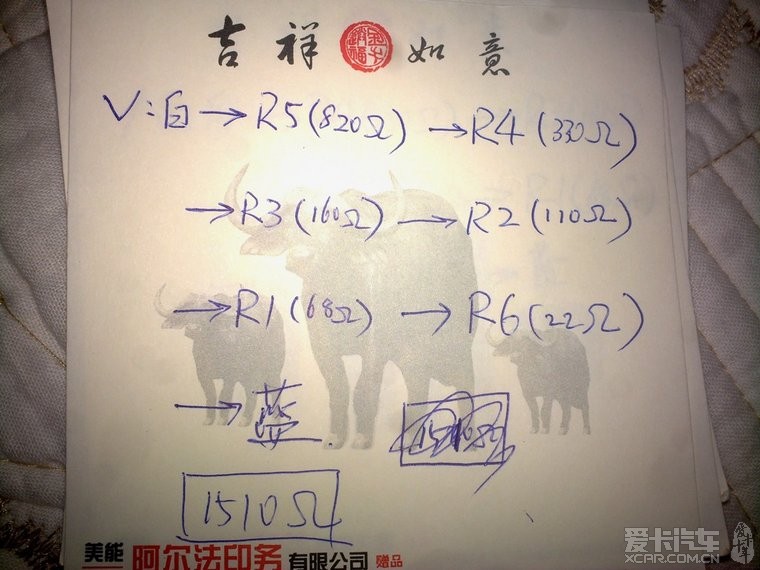 吉祥如意
V:白→R5(820Ω)→R4(330Ω)
→R3(160Ω)→R2(110Ω)
→R1(68Ω)→R6(22Ω)
→蓝
1510Ω
美能 阿尔法印务有限公司 赠品
爱卡汽车
XCAR.COM.CN